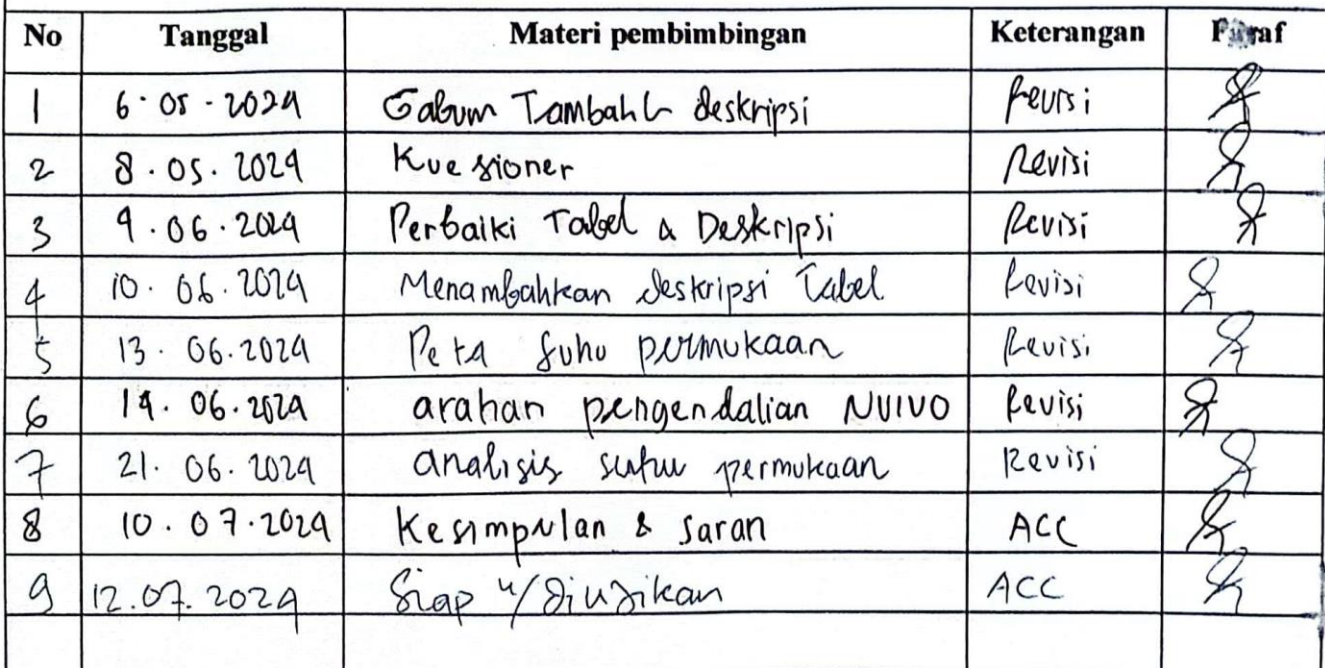 No Tanggal Materi pembimbingan Keterangan Paraf
1 6-05-2024 Gabum Tambahh deskripsi Revisi
2 8.05.2024 Kuesioner Revisi
3 9.06.2024 Perbaiki Tabel & Deskripsi Revisi
4 10.06.2024 Menambahkan deskripsi Tabel Revisi
5 13.06.2024 Peta Suhu permukaan Revisi
6 14.06.2024 arahan pengendalian NVIVO Revisi
7 21.06.2024 analisis suhu permukaan Revisi
8 10.07.2024 Kesimpulan & Saran ACC
9 12.07.2024 Siap u/ diujikan ACC